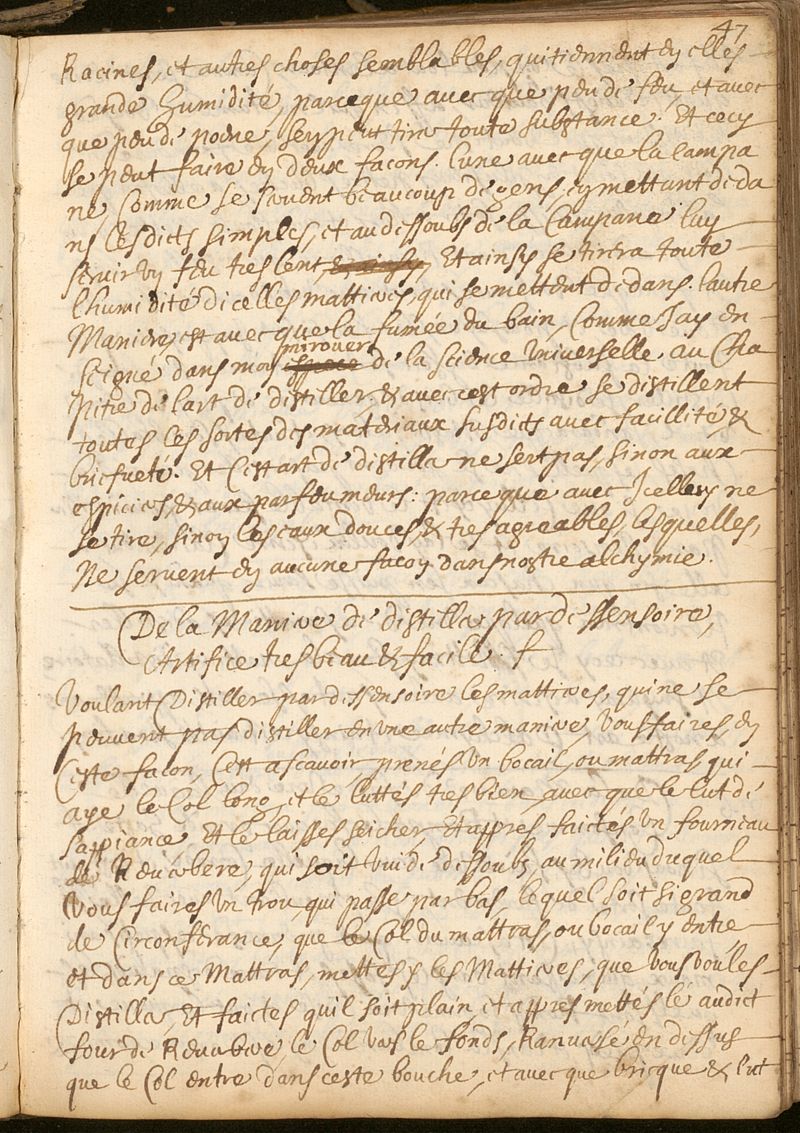 47
Racines, et autres choses semblables, qui tiennent en elles
grande humidité, parceque avecque peu de feu, et avec
que peu de peine, sen peut tirer toute substance. Et cecy
se peut faire en deux facons. lune avecque la campa
ne, comme se servent beaucoup de gens, en mettant deda
ns lesdicts simples, et au dessoubs de la Campane luy
servir un feu tres lent, Et ainsy se tirera toute
lhumidité dicelles mattieres, qui se mettent dedans. lautre
Maniere, est avecque la fumée du bain, Comme Jay en
seigné dans mon mirouer de la science Universelle au Cha
pitre de lart de distiller; & avec cest ordre se distillent
toutes les sortes des materiaux susdicts avec facillité &
briefveté. Et Cest art de distiller ne sert pas, sinon aux
espiciers, & aux parfeumeurs: parceque avec Icelluy ne
se tire, sinon les eaux douces, & tres agreables, lesquelles,
Ne servent en aucune facon dans nostre alchymie.
De la Maniere de distiller par dessensoire,
Artifice tres beau & facile. †
Voulant Distiller par dessensoire les mattieres, qui ne se
peuvent pas distiller en une autre maniere, vous faires, en
Ceste facon, Cest ascavoir, prenés un bocail, ou mattras qui
aye le Col long, et le luttés tres bien avecque le lut de
sappiance, Et le laisses seicher, Et appres faictes un fourneau
de Reverbere, qui soit vuide dessoubs, au milieu duquel
Vous faires un trou, qui passe par bas, lequel soit si grand
de Circonferance, que le Col du mattras, ou bocail y entre
et dans ce Mattras, mettes y les Mattieres, que vous voules
Distiller, Et faictes quil soit plain, et appres mettés lé audict
four de Reverbere, le Col vers le fonds, Ranversé en dessus
que le Col entre dans ceste bouche, et avecque bricque & lut